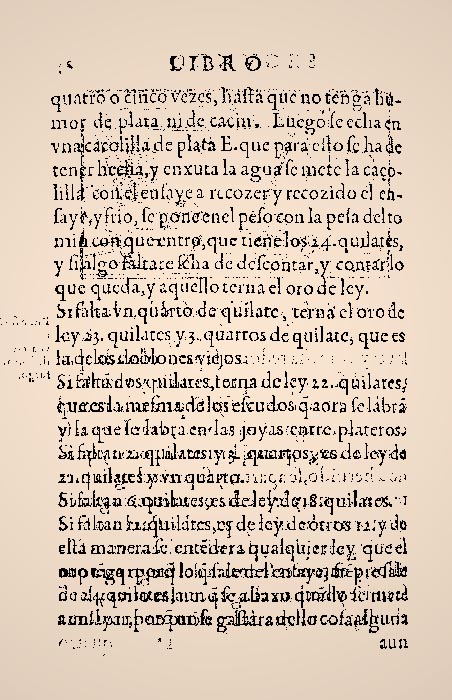 LIBRO
quatro o cinco vezes, hasta que no tenga hu-
mor de plata, ni de cacin. Luego se echa en
vna caçolilla de plata E. que para esto se ha de
tener hecha, y enxuta la agua se mete la caço-
lilla con el ensaye a recozer y recozido el en-
saye, y frio, se pone enel peso con la pesa del to
min con que entro, que tiene los 24. quilates,
y si algo faltare se ha de descontar, y contar lo
que queda, y aquello terna el oro de ley.
Si falta vn quarto de quilate, terna el oro de
ley 23. quilates y 3. quartos de quilate, que es
la de los doblones viejos.
Si falta dos quilates, terna de ley 22. quilates,
que es la mesma de los escudos q̃ aora se labrã
y la que se labra en las joyas entre plateros.
Si faltan quilates y quartos, es de ley de
21. quilates y vn quarto.
Si faltan 6. quilates, es de ley de 18. quilates.
Si faltan 12. quilates, es de ley de otros 12. y de
esta manera se entẽdera qualquier ley que el
oro tẽga porq̃ lo q̃ sale del ensaye,
de 24. quilates
se gastara dello cosa alguna
aun